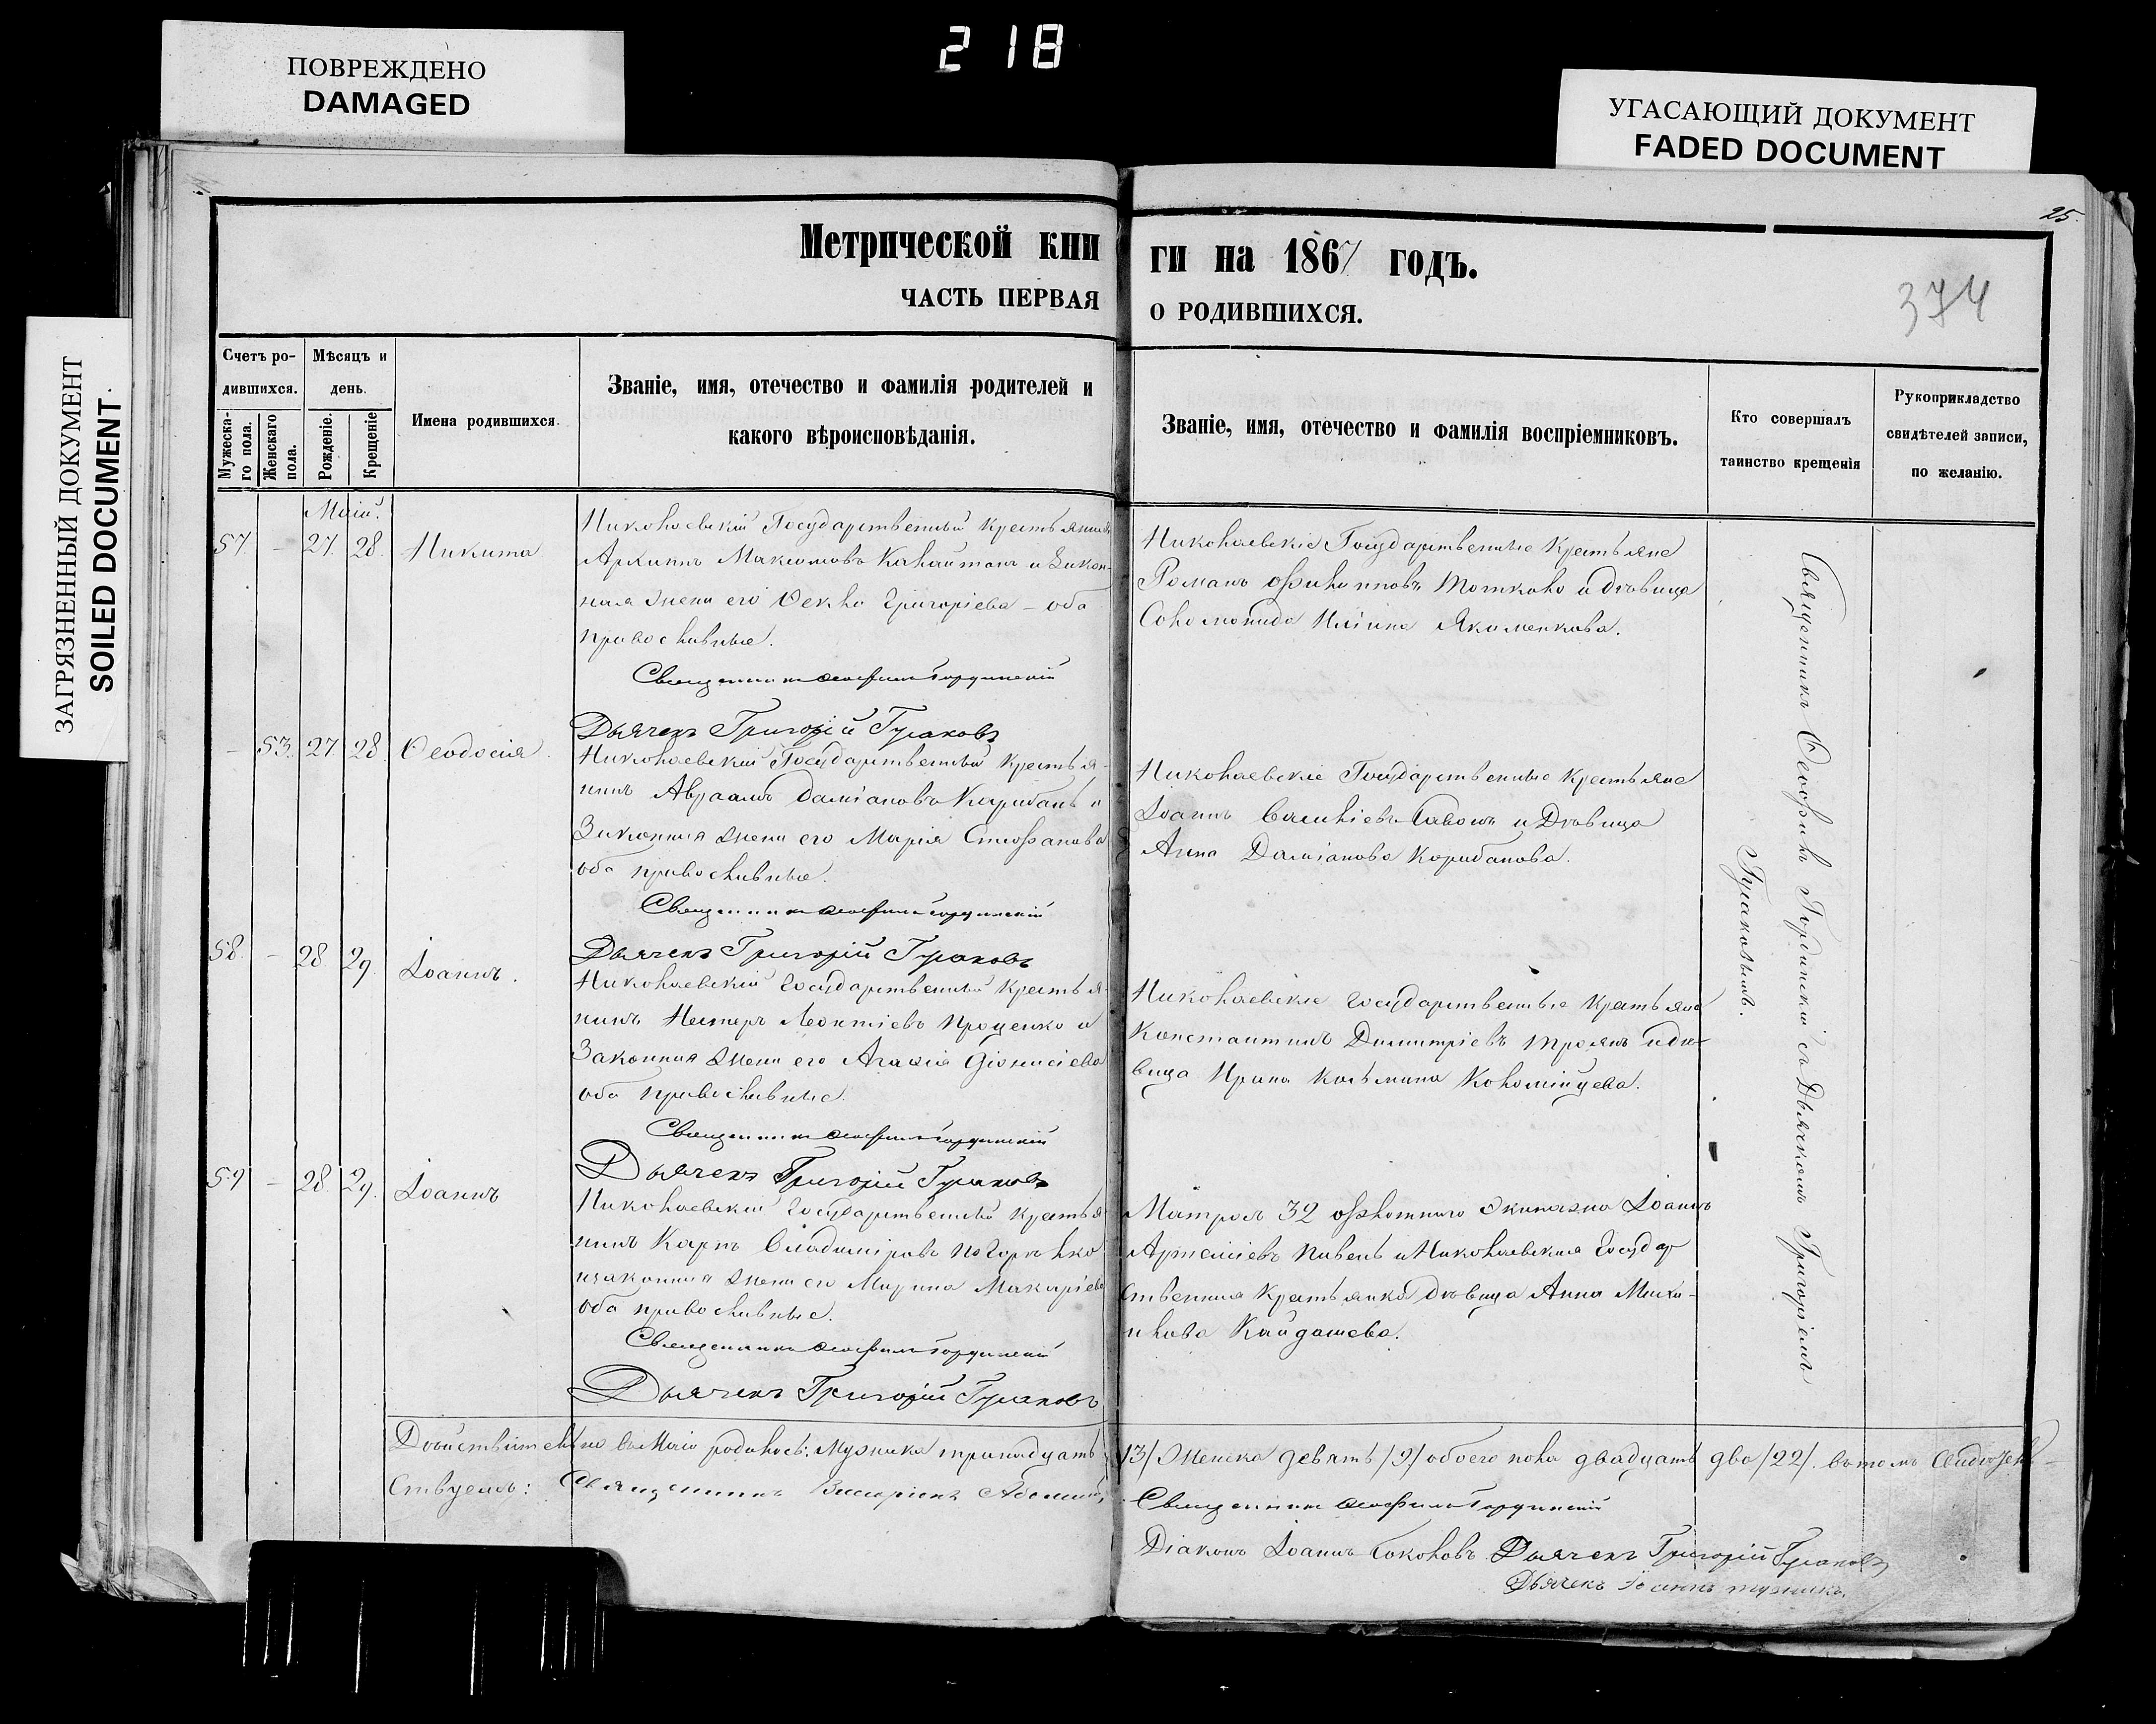 218
ПОВРЕЖДЕНО
DAMAGED
УГАСАЮЩИЙ ДОКУМЕНТ
FADED DOCUMENT
ЗАГРЯЗНЕННЫЙ ДОКУМЕНТ
SOILED DOCUMENT
25.
374
Метрической кни ги на 1867 годъ.
ЧАСТЬ ПЕРВАЯ О РОДИВШИХСЯ.
Счетъ ро-
дившихся.
Мужеска-
го пола.
Женскаго
пола.
Мѣсяцъ и
день.
Рожденіе.
Крещеніе
Имена родившихся.
Званіе, имя, отечество и фамилія родителей и
какого вѣроисповѣданія.
Званіе, имя, отечество и фамилія воспріемниковъ.
Кто совершалъ
таинство крещенія
Рукоприкладство
свидѣтелей записи,
по желанію.
Маій.
57. - 27. 28. Никита
Николаевскій Государственный крестьянинъ
Архиппъ Максимовъ и закон-
ная жена его Ѳекла Григоріева - оба
православные.
Священникъ Ѳеофилъ Гордынскій
Дьячекъ Григорій Гусаковъ
Николаевскіе Государственные крестьяне
Романъ Филипповъ Тоткало и дѣвица
Соломонида Иліина Якименкова.
- 53. 27 28. Ѳеодосія.
Николаевскій Государственный крестья-
нинъ Авраамъ Даміановъ и
Законная жена его Марія Стефанова
оба православные.
Священникъ Ѳеофилъ Гордынскій
Дьячекъ Григорій Гусаковъ
Николаевскіе Государственные крестьяне
Іоаннъ Василіевъ и Дѣвица
Анна Даміанова Корибанова.
58. - 28 29. Іоаннъ.
Николаевскій Государственный крестья-
нинъ Нестеръ Леонтіевъ Проценко и
Законная жена его Агафія Діонисіева
оба православные.
Священникъ Ѳеофилъ Гордынскій
Дьячекъ Григорій Гусаковъ
Николаевскіе Государственные крестьяне
Константинъ Димитріевъ Троянъ и дѣ-
вица Ирина Козьмина Коломійцева.
59 - 28. 29. Іоаннъ
Николаевскій Государственный крестья-
нинъ Карпъ Владиміровъ
и законная жена его Марина Макаріева
оба православные.
Священникъ Ѳеофилъ Гордынскій
Дьячекъ Григорій Гусаковъ
Матрозъ 32 флотнаго Экипажа Іоаннъ
Артеміевъ Пивень и Николаевская Государ
ственная крестьянка дѣвица Анна Миха-
илова Кайдашева.
Священникъ Ѳеофилъ Гордынскій съ Дьячкомъ Григоріемъ
Гусаковымъ.
Дѣйствительно въ Маіѣ родилось: мужеска тринадцать /13/ Женска девять /9/ обоего пола двадцать два /22/. въ томъ свидѣтель-
ствуемъ: Священникъ
Священникъ Ѳеофилъ Гордынскій
Діаконъ Іоаннъ Соколовъ Дьячекъ Григорій Гусаковъ
Дьячекъ Іоаннъ